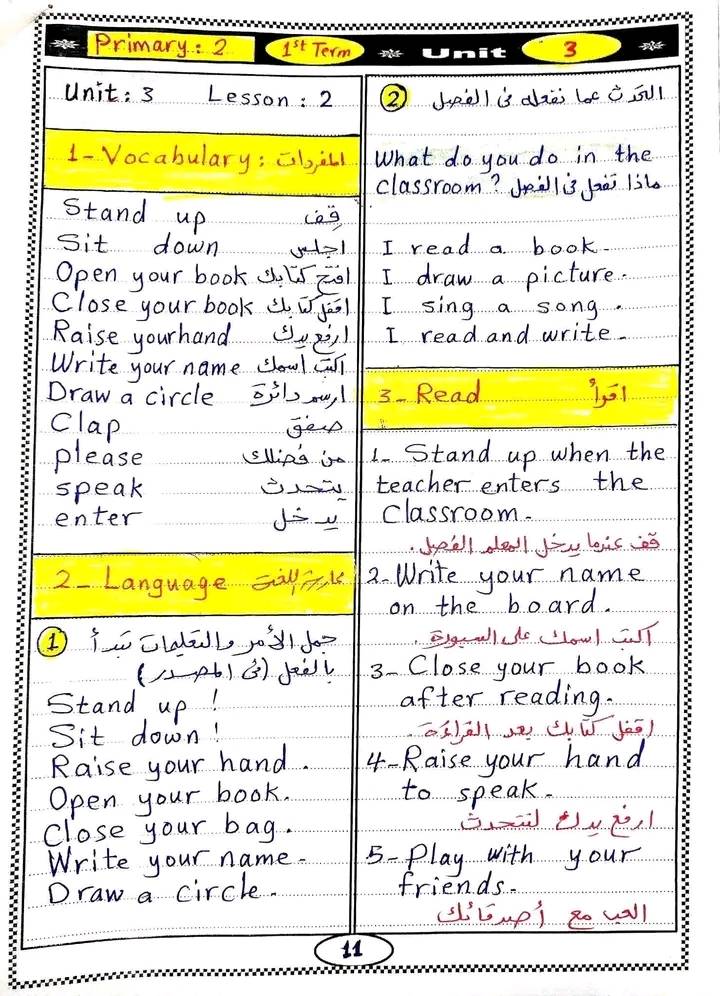 Primary: 2 1st Term Unit 3
Unit: 3 Lesson: 2
1- Vocabulary: المفردات
Stand up قف
Sit down اجلس
Open your book افتح كتابك
Close your book اقفل كتابك
Raise your hand ارفع يدك
Write your name اكتب اسمك
Draw a circle ارسم دائرة
Clap صفق
please من فضلك
speak يتحدث
enter يدخل
2- Language ممارسة اللغة
1 جمل الأمر والتعليمات تبدأ
بالفعل (في المصدر)
Stand up!
Sit down!
Raise your hand.
Open your book.
Close your bag.
Write your name.
Draw a circle.
2 التحدث عما نفعله في الفصل
What do you do in the
classroom? ماذا تفعل في الفصل
I read a book.
I draw a picture.
I sing a song.
I read and write.
3- Read اقرأ
1- Stand up when the
teacher enters the
Classroom.
قف عندما يدخل المعلم الفصل.
2- Write your name
on the board.
اكتب اسمك على السبورة.
3- Close your book
after reading.
اقفل كتابك بعد القراءة.
4- Raise your hand
to speak.
ارفع يدك لتتحدث
5- Play with your
friends.
العب مع أصدقائك
11